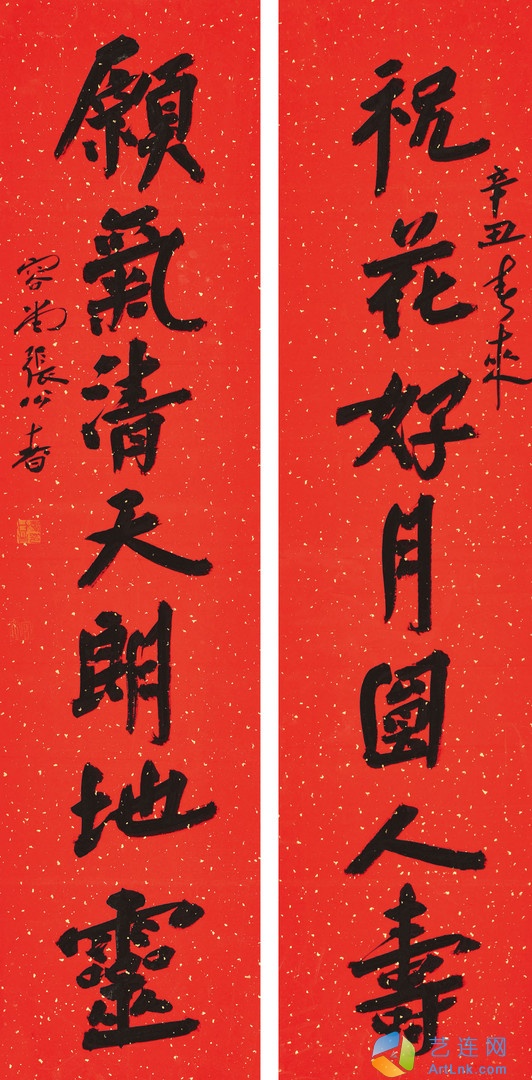 祝花好月圓人壽
辛丑春來
願氣清天朗地靈
容尚張公者
艺连网
ArtLnk.com